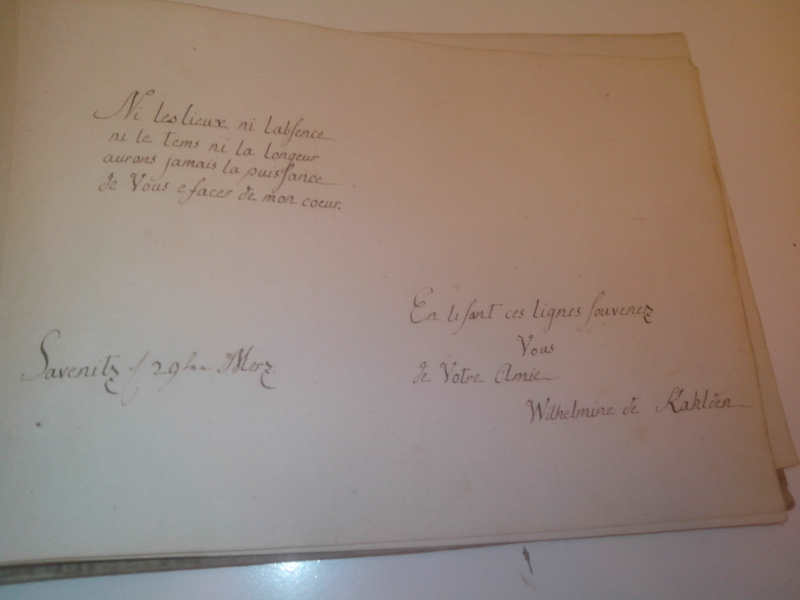 Ni les lieux ni labsence
ni le tems ni la longeur
aurons jamais la puissance
de Vous efacer de mon coeur.
En lisant ces lignes souvenez
Vous
de Votre Amie
Wilhelmine de Kahlden
Savenitz 29ten Merz